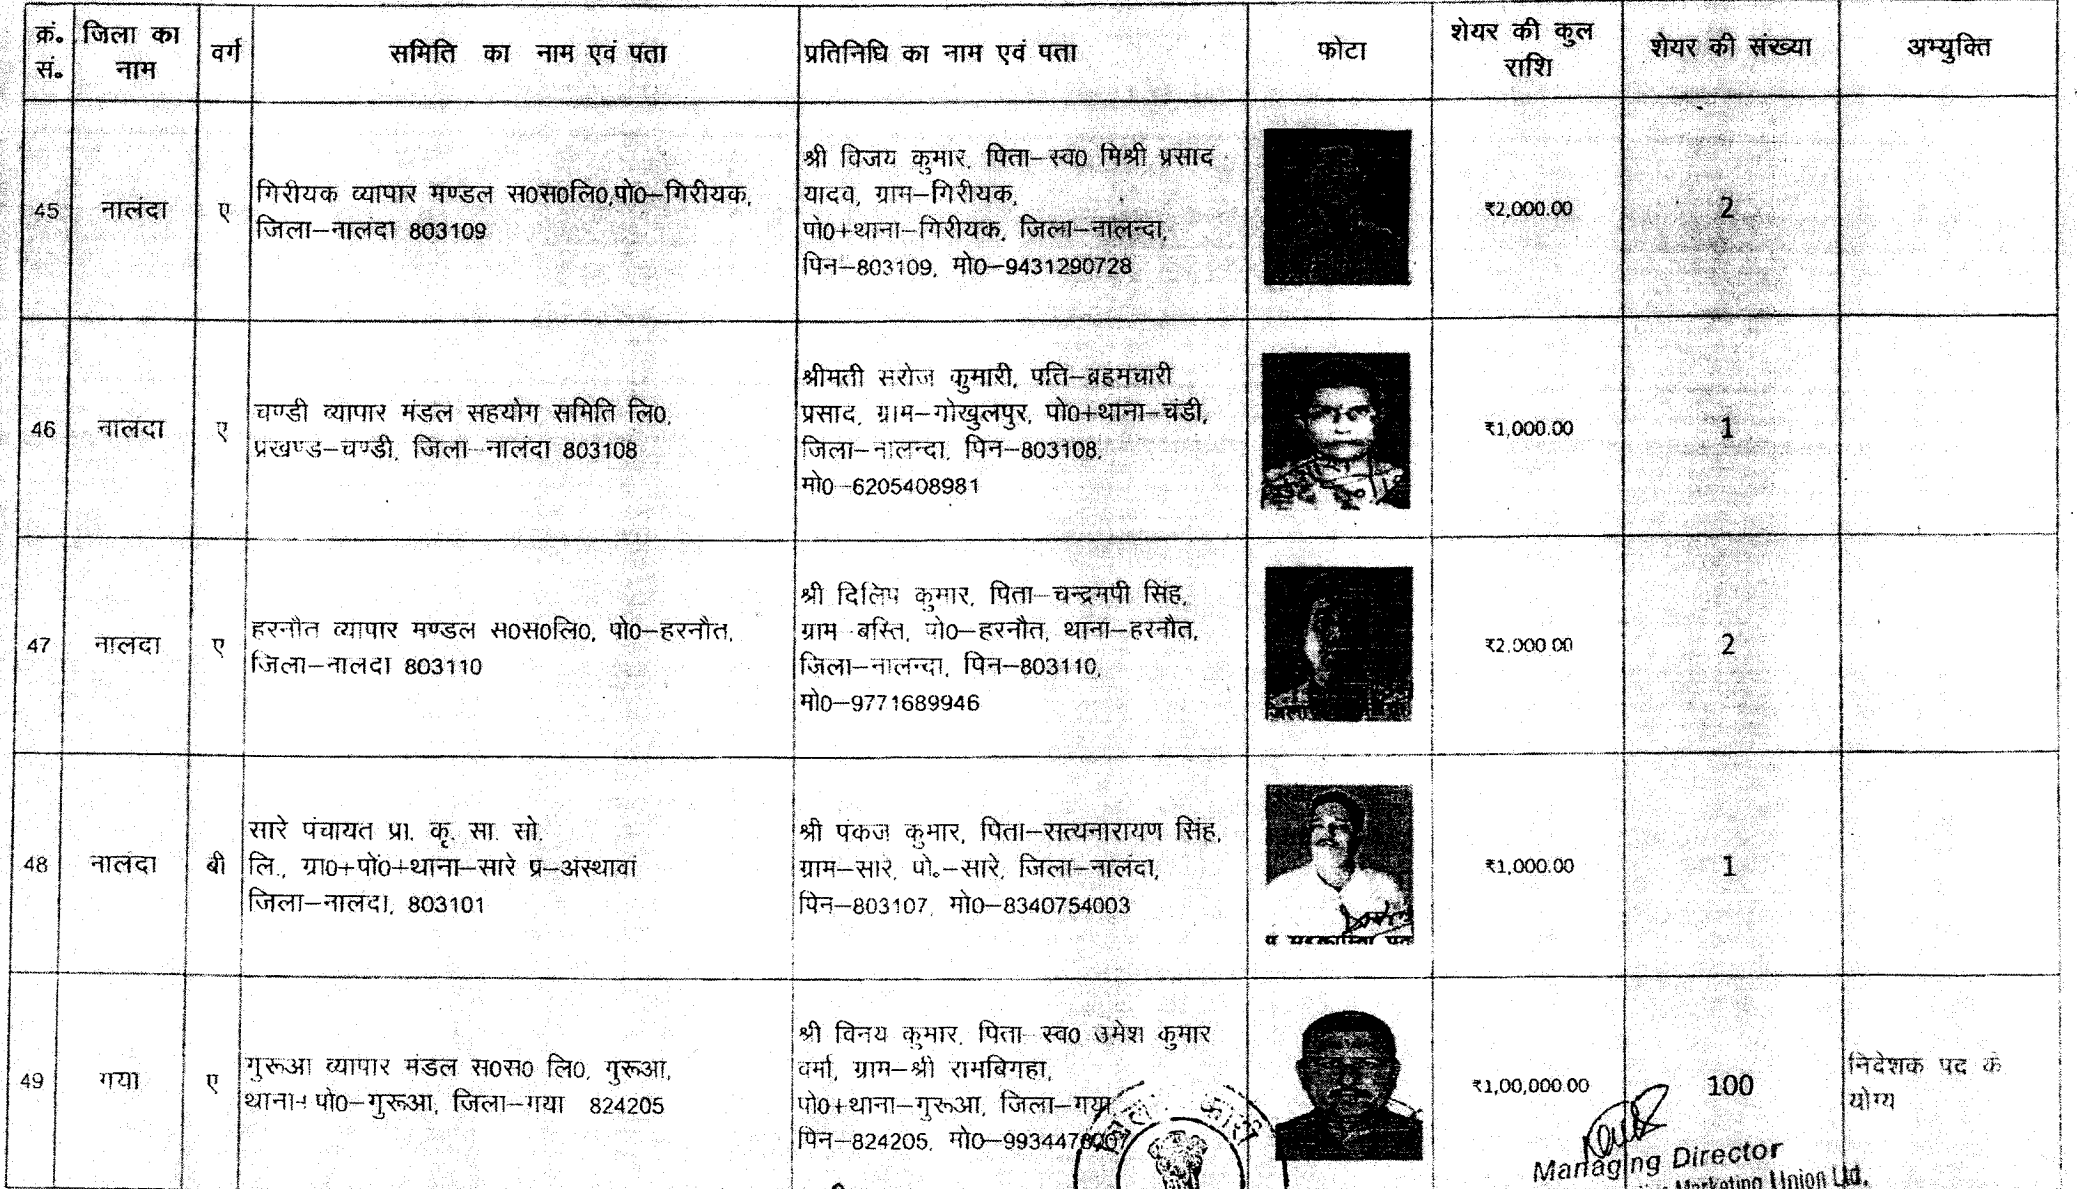 क्रं. जिला का वर्ग समिति का नाम एवं पता प्रतिनिधि का नाम एवं पता फोटा शेयर की कुल शेयर की संख्या अभ्युक्ति
सं. नाम राशि
45 नालंदा ए
गिरीयक व्यापार मण्डल स0स0लि0,पो0–गिरीयक,
जिला–नालंदा 803109
श्री विजय कुमार, पिता–स्व0 मिश्री प्रसाद
यादव, ग्राम–गिरीयक,
पो0+थाना–गिरीयक, जिला–नालन्दा,
पिन–803109, मो0–9431290728
₹2,000.00 2
46 नालंदा ए
चण्डी व्यापार मंडल सहयोग समिति लि0,
प्रखण्ड–चण्डी, जिला–नालंदा 803108
श्रीमती सरोज कुमारी, पति–ब्रहमचारी
प्रसाद, ग्राम–गोखुलपुर, पो0+थाना–चंडी,
जिला–नालन्दा, पिन–803108,
मो0–6205408981
₹1,000.00 1
47 नालंदा ए
हरनौत व्यापार मण्डल स0स0लि0, पो0–हरनौत,
जिला–नालंदा 803110
श्री दिलिप कुमार, पिता–चन्द्रमपी सिंह,
ग्राम–बस्ति, पो0–हरनौत, थाना–हरनौत,
जिला–नालन्दा, पिन–803110,
मो0–9771689946
₹2,000.00 2
48 नालंदा बी
सारे पंचायत प्रा. कृ. सा. सो.
लि., ग्रा0+पो0+थाना–सारे प्र–अस्थावां
जिला–नालंदा, 803101
श्री पंकज कुमार, पिता–सत्यनारायण सिंह,
ग्राम–सारे, पो.–सारे, जिला–नालंदा,
पिन–803107, मो0–8340754003
₹1,000.00 1
49 गया ए
गुरूआ व्यापार मंडल स0स0 लि0, गुरूआ,
थाना+पो0–गुरूआ, जिला–गया 824205
श्री विनय कुमार, पिता–स्व0 उमेश कुमार
वर्मा, ग्राम–श्री रामबिगहा,
पो0+थाना–गुरूआ, जिला–गया,
पिन–824205, मो0–
₹1,00,000.00 100
निदेशक पद के
योग्य
Managing Director
Marketing Union Ltd.